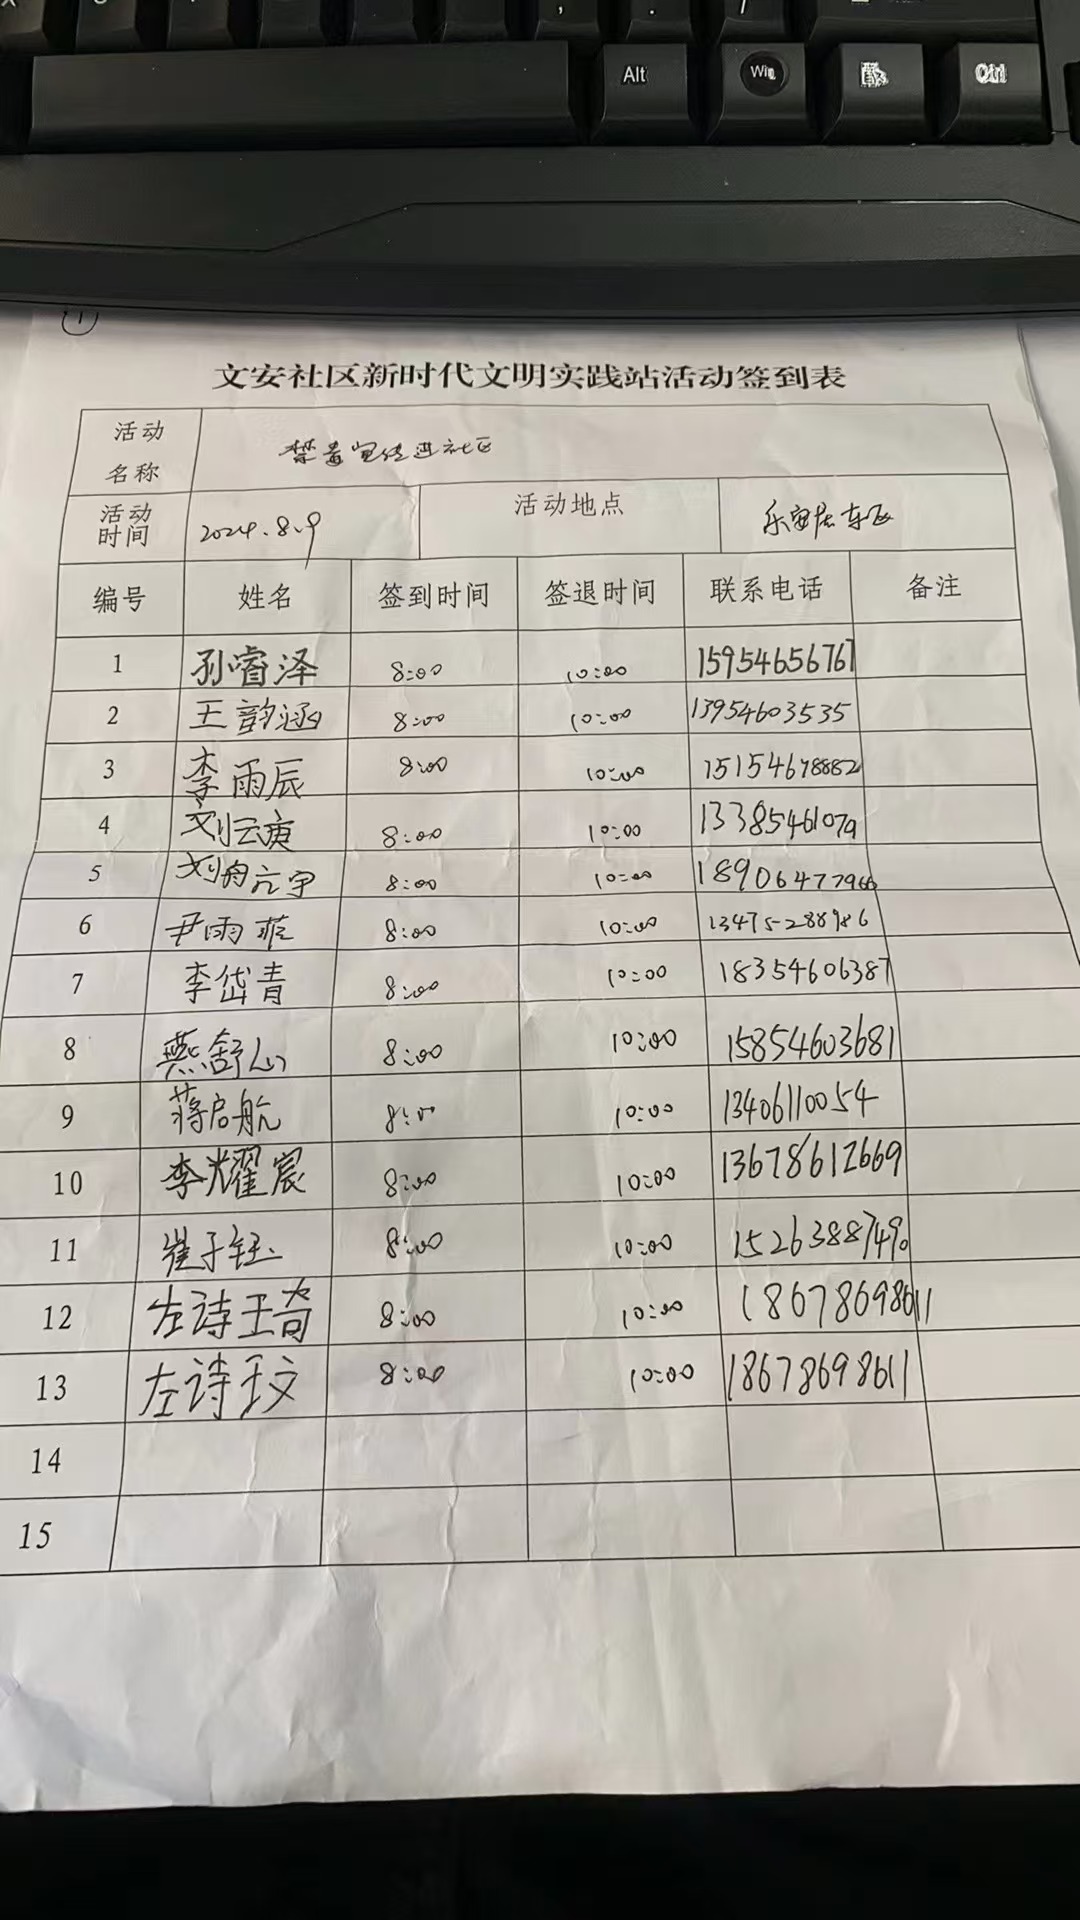 Alt
Win
Ctrl
1
文安社区新时代文明实践站活动签到表
活动名称 禁毒宣传进社区
活动时间 2024.8.9 活动地点 乐安居东区
编号 姓名 签到时间 签退时间 联系电话 备注
1 孙睿泽 8:00 10:00 15954656767
2 王韵涵 8:00 10:00 13954603535
3 李雨辰 8:00 10:00 15154678882
4 刘云庚 8:00 10:00 13385461079
5 刘舟亢宇 8:00 10:00 18906477966
6 尹雨菲 8:00 10:00 13475288986
7 李岱青 8:00 10:00 18354606387
8 燕舒心 8:00 10:00 15854603681
9 蒋启航 8:00 10:00 13406110054
10 李耀宸 8:00 10:00 13678612669
11 崔子钰 8:00 10:00 15263887490
12 左诗琦 8:00 10:00 18678698611
13 左诗玟 8:00 10:00 18678698611
14
15